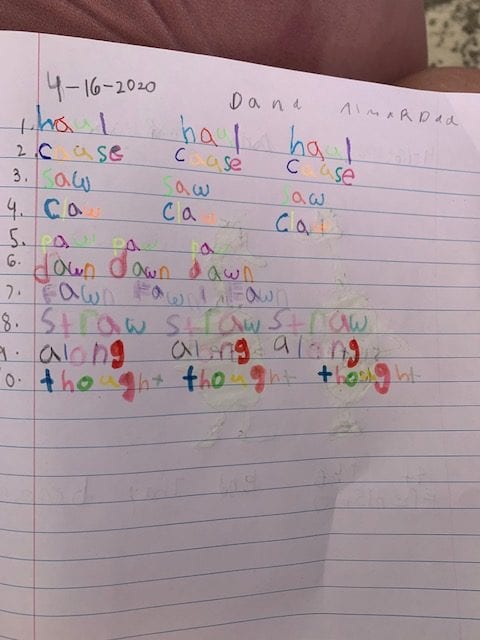 4-16-2020 Dana
1. haul haul haul
2. cause cause cause
3. saw saw saw
4. claw claw claw
5. paw paw paw
6. dawn dawn dawn
7. Fawn Fawn Fawn
8. straw straw straw
9. along along along
0. thought thought thought